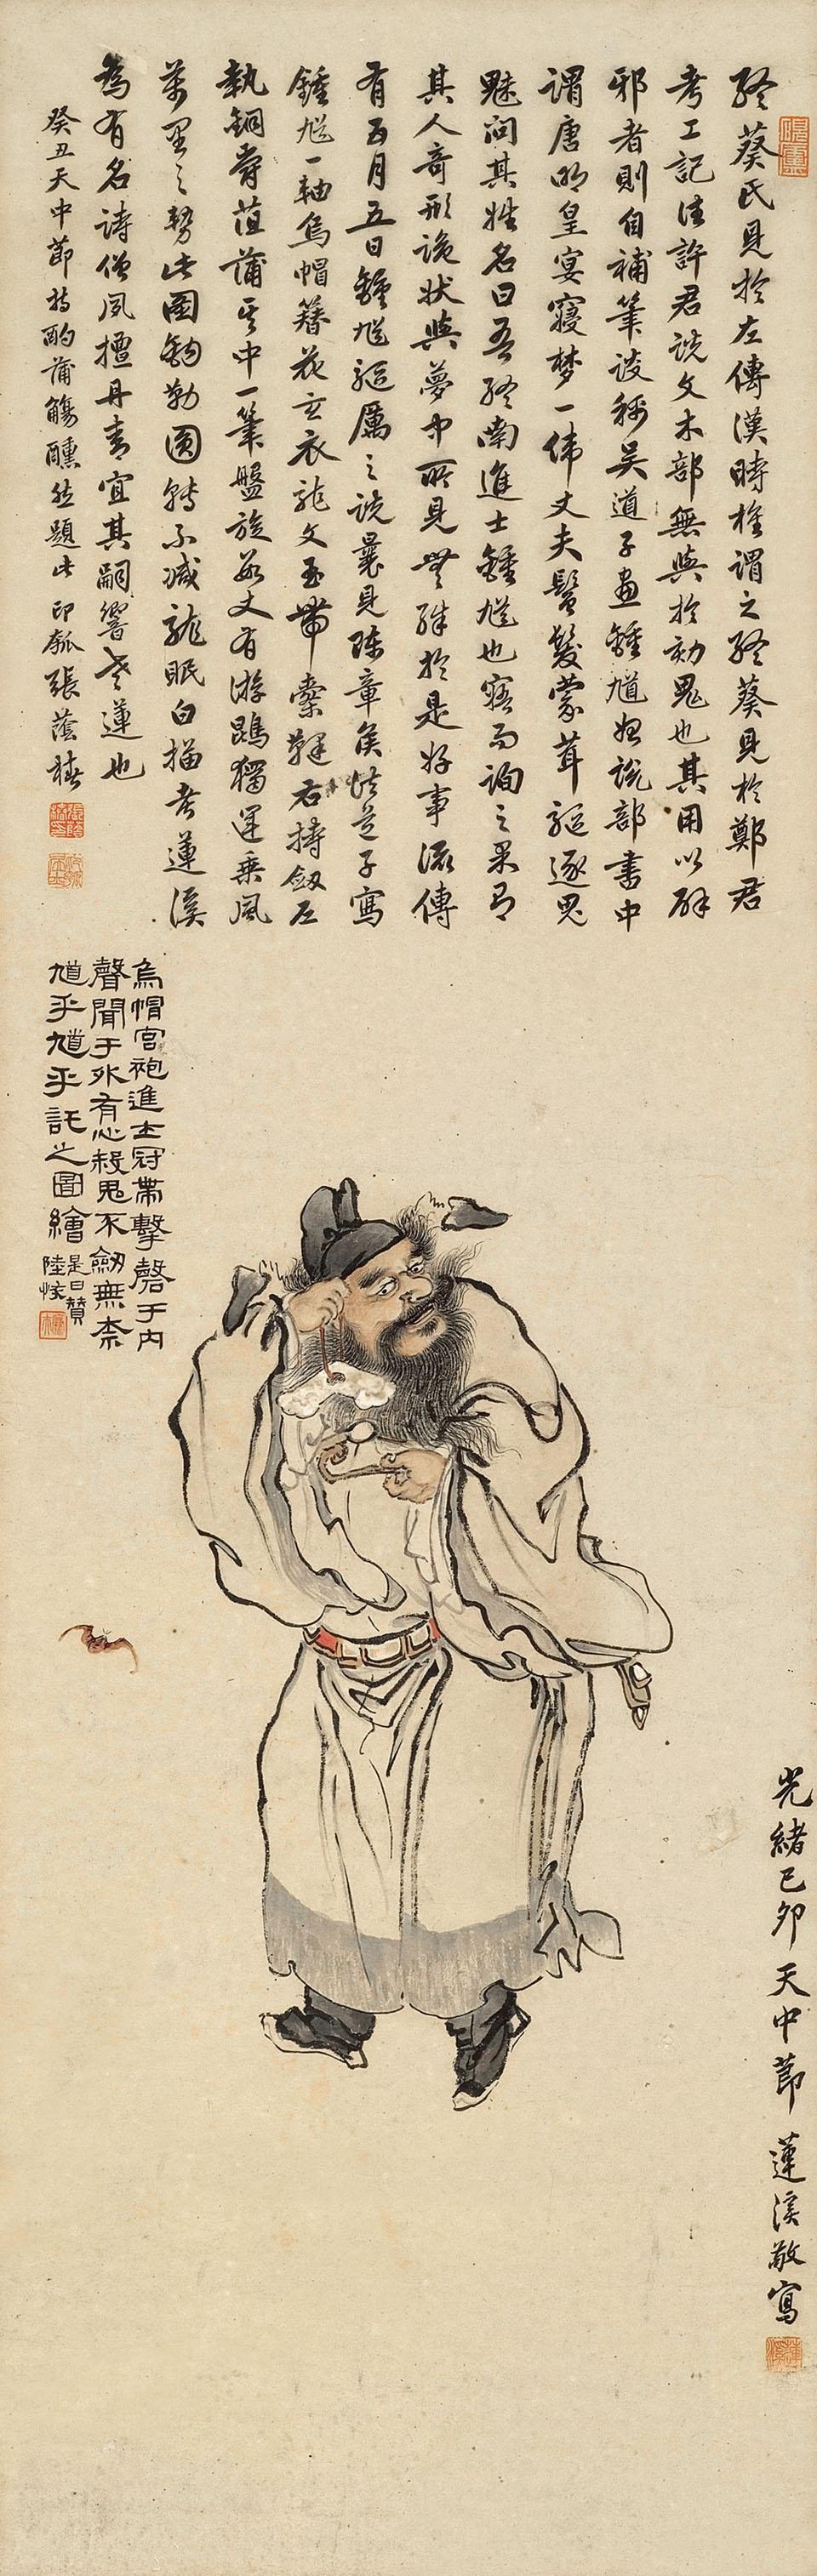 終葵氏見於左傳漢時權謂之終葵見於鄭君
考工記注許君說文木部無與於劾鬼也其用以辟
邪者則自補筆談稱吳道子畫鍾馗始說部書中
謂唐明皇宴寢梦一偉丈夫鬢髮蒙茸驅逐鬼
魅問其姓名曰吾終南進士鍾馗也寤而詢之果有
其人奇形詭狀與夢中所見無殊於是好事流傳
有五月五日鍾馗驅厲之說曩見陳章侯性道子寫
鍾馗一軸烏帽簪花玄衣龍文玉帶橐鞬右持劔左
執銅膋菹蒲其中一筆盤旋數丈有游鵾獨運乘風
萬里之勢此圖鉤勒圓轉不減龍眠白描考蓮溪
為有名詩僧夙擅丹青宜其嗣響老蓮也
癸丑天中節持酌蒲觴醺然題此 印瓠張蔭椿
烏帽宮袍進士冠帶擊磬于內
聲聞于外有心殺鬼不劒無柰
馗乎馗乎託之圖繪
是曰贊
陸恢
光緒己卯天中節 蓮溪敬寫